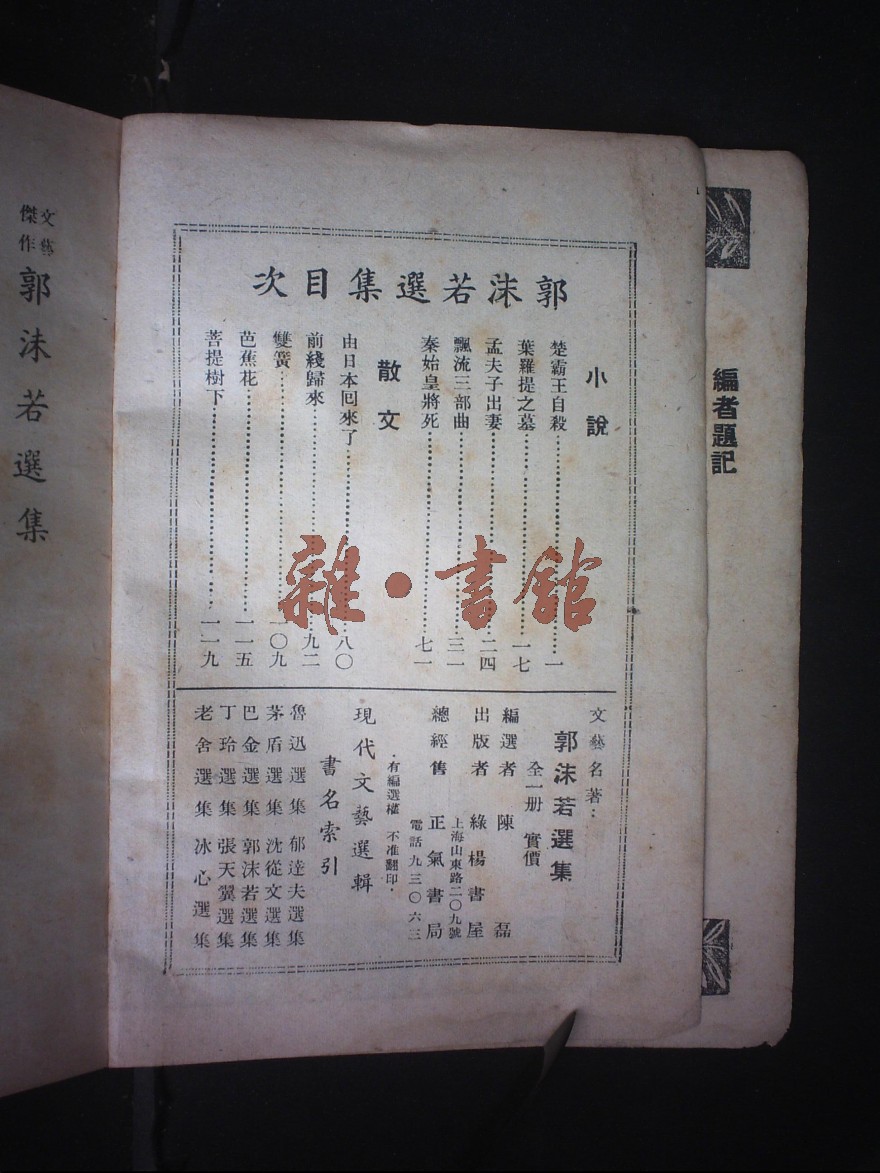 編者題記
郭沫若選集目次
小說
楚霸王自殺⋯⋯一
葉羅提之墓⋯⋯一七
孟夫子出妻⋯⋯二四
飄流三部曲⋯⋯三一
秦始皇將死⋯⋯七一
散文
由日本回來了⋯⋯八〇
前綫歸來⋯⋯九二
雙簧⋯⋯一〇九
芭蕉花⋯⋯一一五
菩提樹下⋯⋯一一九
文藝名著：
郭沫若選集
全一册 實價
編選者 陳磊
出版者 綠楊書屋
上海山東路二〇九號
總經售 正氣書局
電話九三〇六三
·有編選權 不准翻印·
現代文藝選輯
書名索引
魯迅選集 郁達夫選集
茅盾選集 沈從文選集
巴金選集 郭沫若選集
丁玲選集 張天翼選集
老舍選集 冰心選集
文藝傑作
郭沫若選集
雜·書館